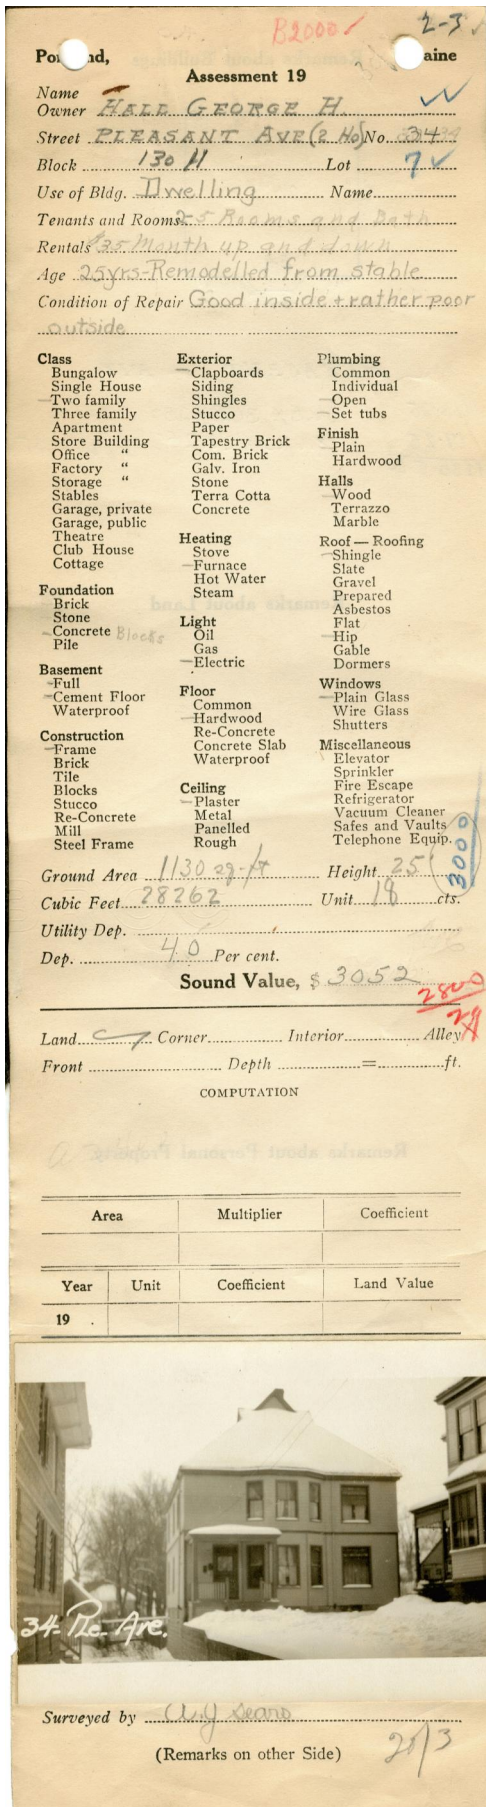 B2000 ✓ 2-3 ✓
Po nd, aine
Assessment 19
Name
Owner HALL GEORGE H.
Street PLEASANT AVE (2 Ho) No 34
Block 130 H Lot 7 ✓
Use of Bldg. Dwelling Name
Tenants and Rooms 2 5 Rooms and Bath
Rentals $35 Month up and down
Age 25yrs-Remodelled from stable
Condition of Repair Good inside + rather poor
outside
Class
Bungalow
Single House
Two family
Three family
Apartment
Store Building
Office "
Factory "
Storage "
Stables
Garage, private
Garage, public
Theatre
Club House
Cottage
Foundation
Brick
Stone
Concrete Blocks
Pile
Basement
Full
Cement Floor
Waterproof
Construction
Frame
Brick
Tile
Blocks
Stucco
Re-Concrete
Mill
Steel Frame
Exterior
Clapboards
Siding
Shingles
Stucco
Paper
Tapestry Brick
Com. Brick
Galv. Iron
Stone
Terra Cotta
Concrete
Heating
Stove
Furnace
Hot Water
Steam
Light
Oil
Gas
Electric
Floor
Common
Hardwood
Re-Concrete
Concrete Slab
Waterproof
Ceiling
Plaster
Metal
Panelled
Rough
Plumbing
Common
Individual
Open
Set tubs
Finish
Plain
Hardwood
Halls
Wood
Terrazzo
Marble
Roof — Roofing
Shingle
Slate
Gravel
Prepared
Asbestos
Flat
Hip
Gable
Dormers
Windows
Plain Glass
Wire Glass
Shutters
Miscellaneous
Elevator
Sprinkler
Fire Escape
Refrigerator
Vacuum Cleaner
Safes and Vaults
Telephone Equip.
3000
Ground Area 1130 sq-ft Height 25'
Cubic Feet 28262 Unit 18 cts.
Utility Dep.
Dep. 40 Per cent.
Sound Value, $ 3052
2800
Land Corner Interior Alley
Front Depth = ft.
COMPUTATION
Remarks about Personal Property
Area Multiplier Coefficient
Year Unit Coefficient Land Value
19 .
34- Ple. Ave.
Surveyed by A. J Sears
(Remarks on other Side)